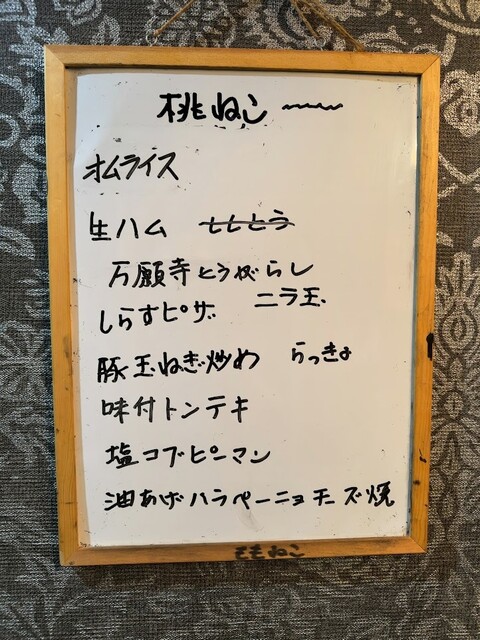 桃ねこ 〜〜
オムライス
生ハム
万願寺とうがらし
しらすピザ ニラ玉
豚玉ねぎ炒め らっきょ
味付トンテキ
塩コブピーマン
油あげハラペーニョチーズ焼
ももねこ